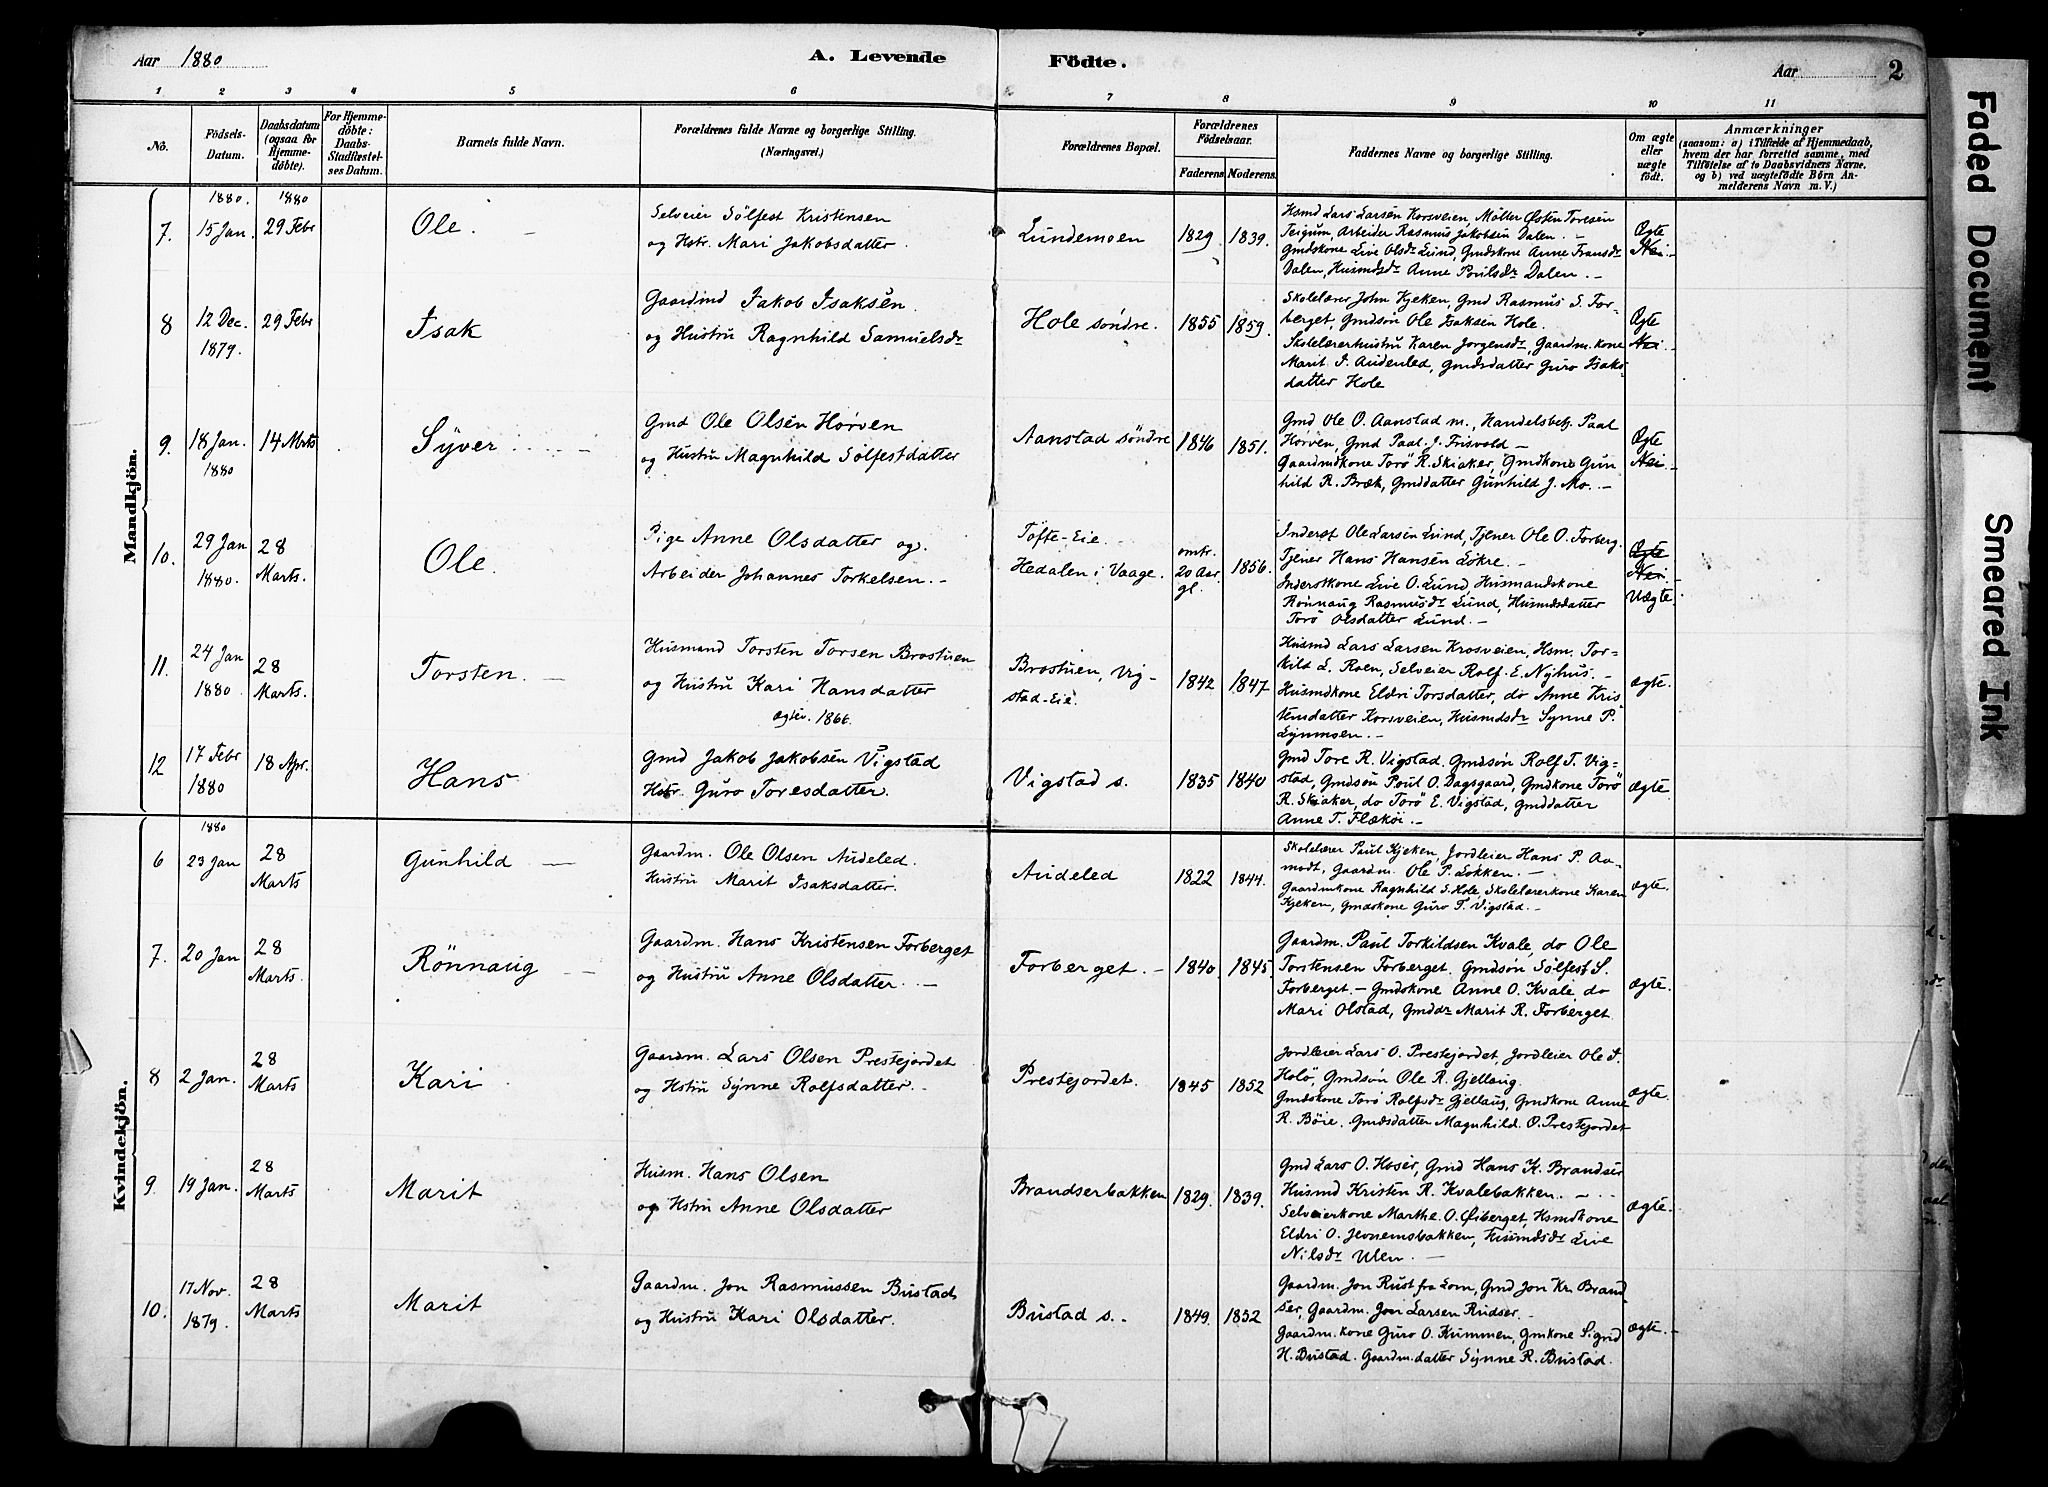 Aar 1880
A. Levende Födte.
Aar 2
1 2 3 4 5 6 7 8 9 10 11
No.
Födsels-Datum.
Daabsdatum (ogsaa for Hjemmedöbte).
For Hjemmedöbte: Daabs-Stadfæstelses Datum.
Barnets fulde Navn.
Forældrenes fulde Navne og borgerlige Stilling.
(Næringsvei.)
Forældrenes Bopæl.
Forældrenes Födselsaar.
Faderens Moderens
Faddernes Navne og borgerlige Stilling.
Om ægte eller uægte født.
Anmærkninger
(saasom: a) i Tilfælde af Hjemmedaab,
hvem der har forrettet samme, med
Tilföielse af to Daabsvidners Navne.
og b) ved uægtefödte Börn An-
melderens Navn m. V.)
Mandkjön.
1880. 1880
7. 15 Jan. 29 Febr
Ole.
Selveier Sölfest Kristensen
og Hstr. Mari Jakobsdatter.
Lundemoen
1829 1839.
Hsmd Lars Larsen Korsveien Møller Østen Toresen
Teigum, Arbeider Rasmus Jakobsen Dalen. -
Gmdskone Live Olsdr Lund, Gmdskone Anne Fransdr
Dalen, Husmdsdr Anne Poulsdr Dalen. -
Ægte
Nei.
8 12 Dec. 1879. 29 Febr
Isak
Gaardmd Jakob Isaksen.
og Hustru Ragnhild Samuelsdr
Hole söndre.
1855 1859.
Skolelærer John Kjeken, Gmd Rasmus S. For-
berget, Gmdsøn Ole Isaksen Hole.
Skolelærerhustru Karen Jorgensdr, Gaardm.kone
Marit J. Audenled, Gmdsdatter Guro Isaks-
datter Hole
Ægte
Nei.
9. 18 Jan. 1880 14 Mrts
Syver
Gmd Ole Olsen Hørven
og Hustru Magnhild Sölfestdatter
Aanstad söndre
1846 1851.
Gmd Ole O. Aanstad m., Handelsbetj. Paal
Hörven, Gmd Paal J. Frisvold -
Gaardmdkone Torö R. Skiaker, Gmdkone Gun
hild R. Bræk, Gmddatter Gunhild J. Mo. -
Ægte
Nei.
10. 29 Jan 1880. 28 Marts.
Ole.
Pige Anne Olsdatter og.
Arbeider Johannes Torkelsen. -
Töfte-Eie.
Hedalen i Vaage.
omtr. 20 Aar gl. 1856.
Inderst Ole Larsen Lund, Tjener Ole O. Forberg.
Tjener Hans Hansen Lökre. -
Inderstkone Live O. Lund, Husmandskone
Rönnaug Rasmusdr Lund, Husmdsdatter
Torö Olsdatter Lund. -
Ægte
Nei.
Uægte.
11. 24 Jan 1880. 28 Marts.
Torsten. -
Husmand Torsten Torsen Brostuen
og Hustru Kari Hansdatter
Ægtev. 1866.
Brostuen, Vig-
stad-Eie
1842 1847.
Husmd Lars Larsen Krosveien, Hsm. Tor-
kild L. Roen, Selveier Rolf E. Nyhus. -
Husmdkone Eldri Torsdatter, do Anne Kris
tensdatter Korsveien, Husmdsdr Synne P.
Lynmoen. -
ægte.
12 17 Febr 1880 18 Apr.
Hans
Gmd Jakob Jakobsen Vigstad
Hstr. Guro Toresdatter.
Vigstad s.
1835 1840
Gmd Tore R. Vigstad, Gmdsøn Rolf T. Vig-
stad, Gmdsøn Poul O. Dagsgaard, Gmdkone Torö
R. Skiaker, do Torö E. Vigstad, Gmddatter
Anne T. Flæköi. -
ægte.
Kvindekjön.
1880
6 23 Jan 28 Marts
Gunhild
Gaardm. Ole Olsen Audeled.
Hustru Marit Isaksdatter.
Audeled
1822 1844.
Skolelærer Paul Kjeken, Jordleier Hans P. Aa-
modt, Gaardm. Ole P. Lökken. -
Gaardmkone Ragnhild S. Hole, Skolelærerkone Karen
Kjeken, Gmdskone Guro T. Vigstad. -
ægte.
7. 20 Jan 28 Marts.
Rönnaug
Gaardm. Hans Kristensen Forberget
og Hustru Anne Olsdatter. -
Forberget. -
1840. 1845.
Gaardm. Paul Torkildsen Kvale, do Ole
Torstensen Forberget. Gmdsøn Sölfest S.
Forberget. - Gmdskone Anne O. Kvale, do
Mari Olstad, Gmddr Marit R. Forberget
ægte.
8 2 Jan. 28 Marts
Kari
Gaardm. Lars Olsen Prestejordet
og Hstru Synne Rolfsdatter. -
Prestejordet.
1845 1852
Jordleier Lars O. Prestejordet, Jordleier Ole S.
Holö, Gmdsøn Ole R. Gjellaug.
Gmdskone Torö Rolfsdr Gjellaug, Gmdkone Anne
R. Böie. Gmdsdatter Magnhild O. Prestejordet
ægte.
9. 19 Jan. 28 Marts
Marit
Husm. Hans Olsen
og Hstru Anne Olsdatter
Brandserbakken
1829. 1839.
Gmd Lars O. Hoser, Gmd Hans K. Brandser
Husmd Kristen R. Kvalebakken. -
Selveierkone Marthe O. Øiberget, Hsmdkone
Eldri O. Jevnemsbakken, Husmdsdr Live
Nilsdr Ulen. -
ægte.
10. 17 Nov. 1879. 28 Marts
Marit
Gaardm. Jon Rasmussen Bustad
og Hustru Kari Olsdatter.
Bustad s. -
1849. 1852
Gaardm. Jon Rust fra Lom, Gmd Jon Kr. Brand
ser, Gaardm. Jon Larsen Rudser. -
Gaardm.kone Guro O. Kummen, Gmkone Sigrid
H. Bustad. Gaardm.datter Synne R. Bustad.
ægte. -
Faded Document
Smeared Ink